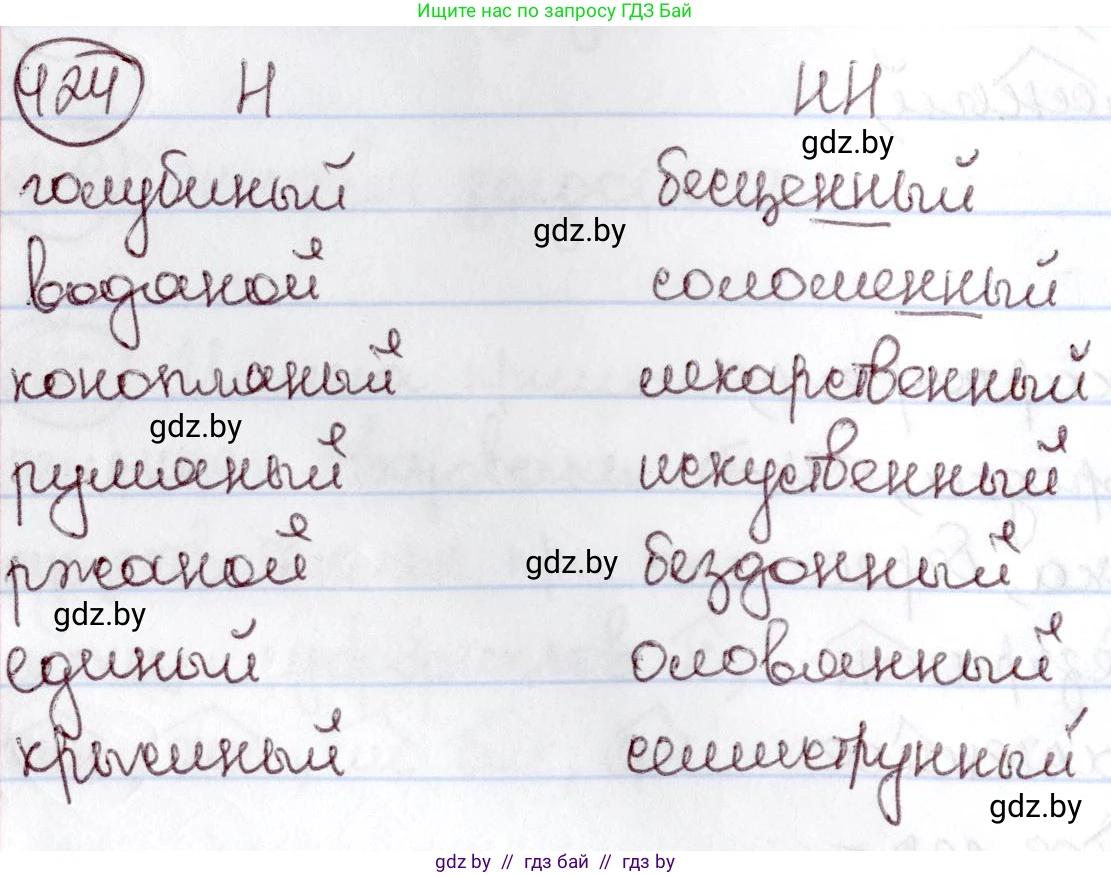 Ищите нас по запросу ГДЗ Бай
424 Н НН
gdz.by
голубиный бесценный
gdz.by
водяной соломенный
конопляный лекарственный
gdz.by
румяный искуственный
ржаной gdz.by бездонный
gdz.by
единый оловянный
крысиный семиструнный
gdz.by
gdz.by // гдз бай // гдз by